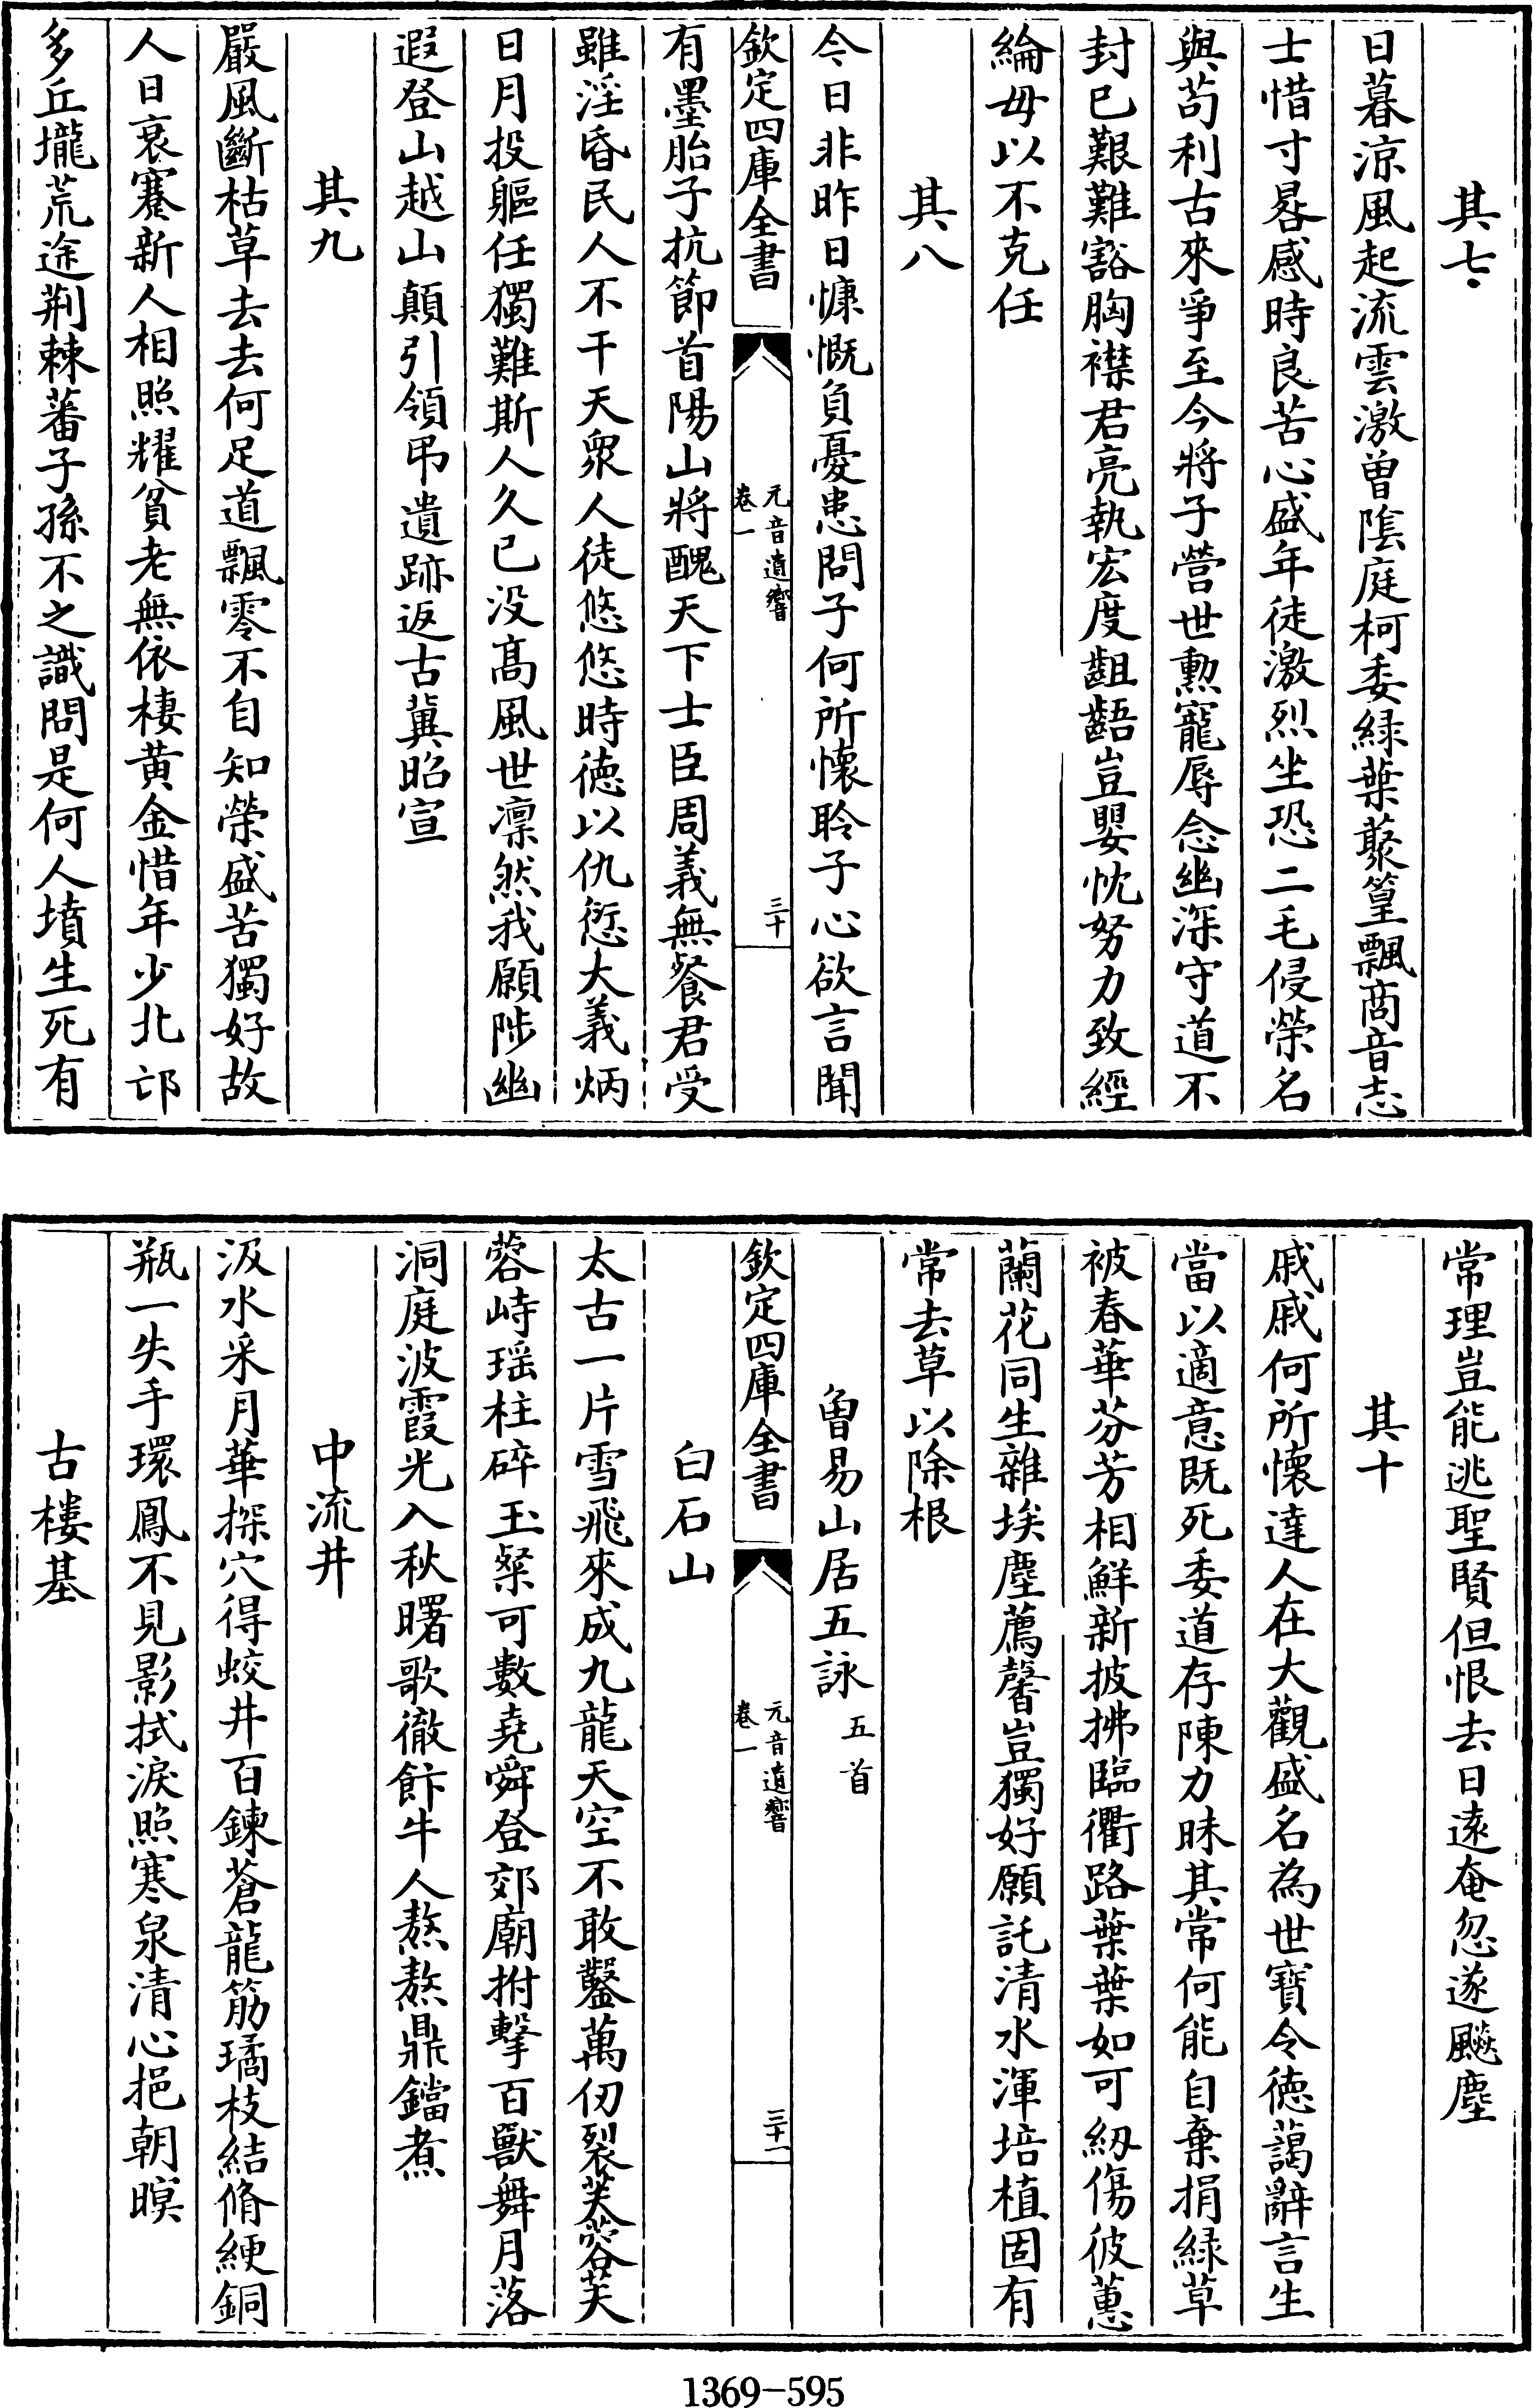 其七
日暮涼風起流雲激曽隂庭柯委緑葉藂篁飄商音志
士惜寸晷感時良苦心盛年徒激烈坐恐二毛侵榮名
與苟利古來爭至今將子營世勲寵辱念幽深守道不
封已艱難豁胸襟君亮執宏度齟齬豈嬰忱努力致經
綸毋以不克任
其八
今日非昨日慷慨負憂患問子何所懷聆子心欲言聞
欽定四庫全書
元音遺響
卷一
三十
有墨胎子抗節首陽山將醜天下士臣周義無餐君受
雖淫昏民人不干天衆人徒悠悠時徳以仇愆大義炳
日月投軀任獨難斯人久已没髙風世凛然我願陟幽
遐登山越山顛引領弔遺跡返古冀昭宣
其九
嚴風斷枯草去去何足道飄零不自知榮盛苦獨好故
人日衰蹇新人相照耀貧老無依棲黄金惜年少北邙
多丘壠荒途荆棘蕃子孫不之識問是何人墳生死有
常理豈能逃聖賢但恨去日逺奄忽遂飈塵
其十
戚戚何所懷達人在大觀盛名為世寶令徳藹辭言生
當以適意既死委道存陳力昧其常何能自棄捐緑草
被春華芬芳相鮮新披拂臨衢路葉葉如可紉傷彼蕙
蘭花同生雜埃塵薦馨豈獨好願託清水渾培植固有
常去草以除根
曽易山居五詠五首
欽定四庫全書
元音遺響
卷一
三十一
白石山
太古一片雪飛來成九龍天空不敢鑿萬仞裂芙蓉芙
蓉峙瑶柱碎玉粲可數堯舜登郊廟拊擊百獸舞月落
洞庭波霞光入秋曙歌徹飰牛人熬熬鼎鐺煮
中流井
汲水采月華探穴得蛟井百鍊蒼龍筋璚枝結脩綆銅
瓶一失手環鳳不見影拭淚照寒泉清心挹朝暝
古樓基
1369-595